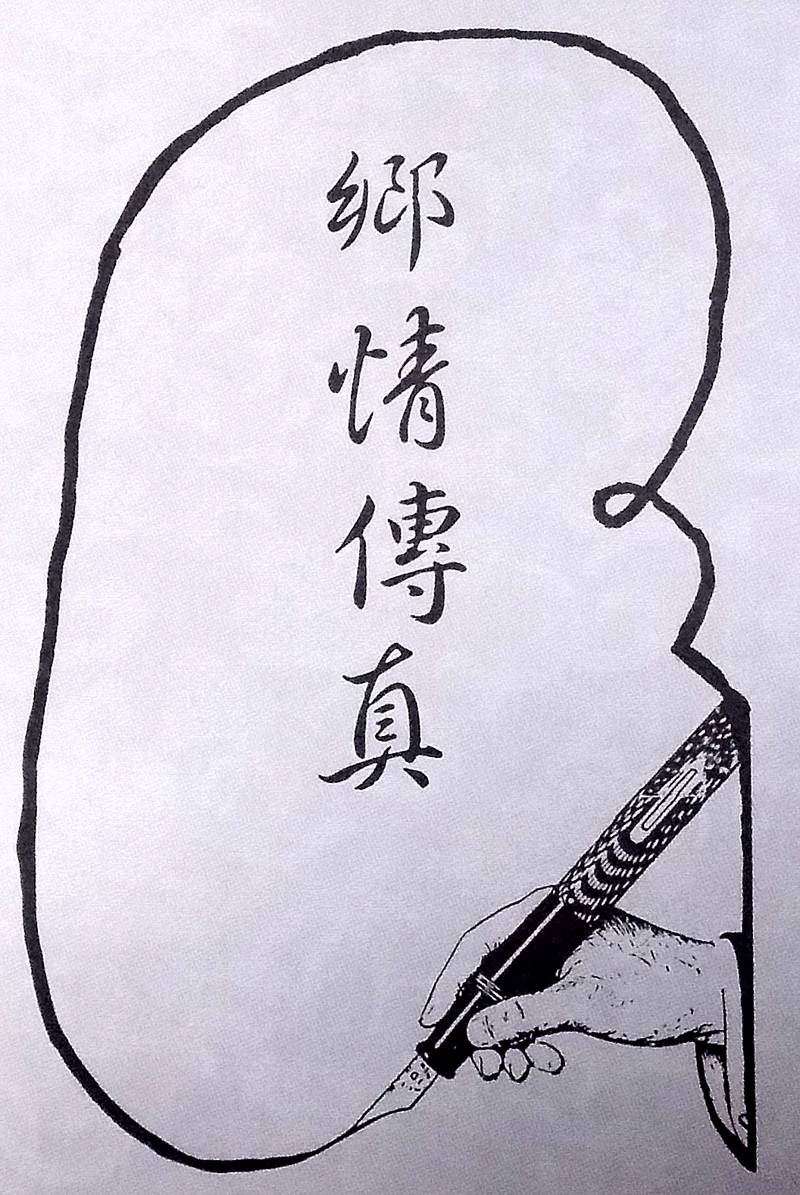 鄉情傳真